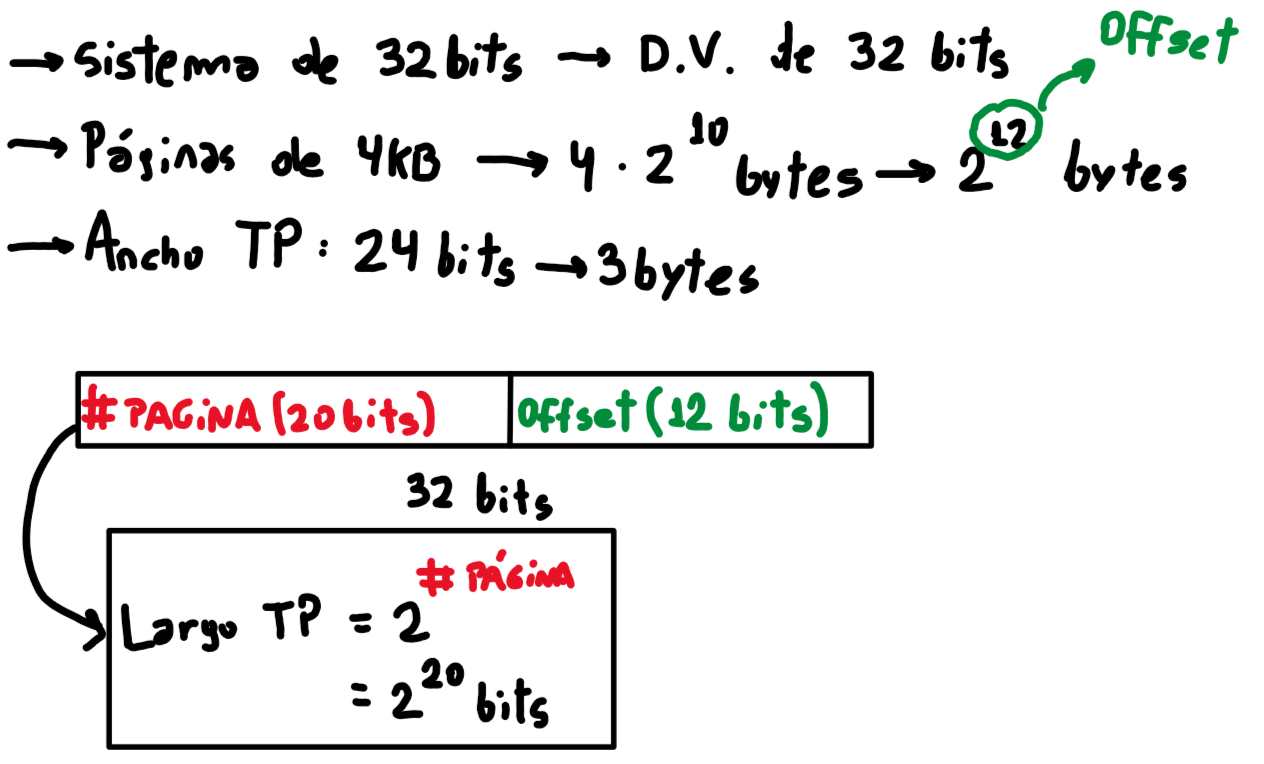 Offset
→ Sistema de 32 bits → D.V. de 32 bits
→ Páginas de 4KB → 4 · 2^10 bytes → 2^12 bytes
→ Ancho TP: 24 bits → 3 bytes
# PAGiNA (20 bits) Offset (12 bits)
32 bits
Largo TP = 2^# PÁGiNA
= 2^20 bits